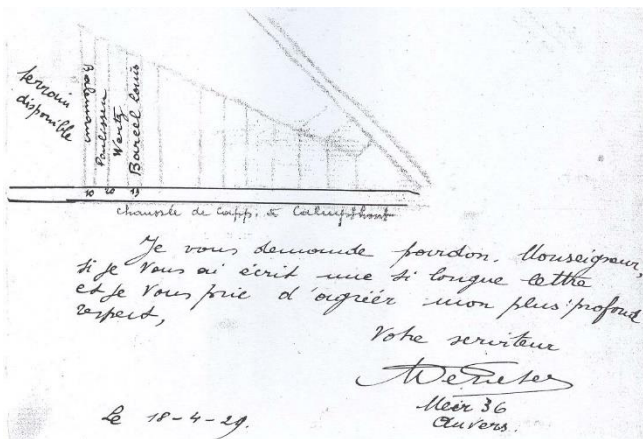 terrain
disponible
Paulissen
Wertz
Bareel Louis
10 20 15
chaussée de Capp. à Calmpthout
Je vous demande pardon. Monseigneur,
si je vous ai écrit une si longue lettre
et je vous prie d'agréer mon plus profond
respect,
Votre serviteur
Meir 36
Anvers.
Le 18-4-29.